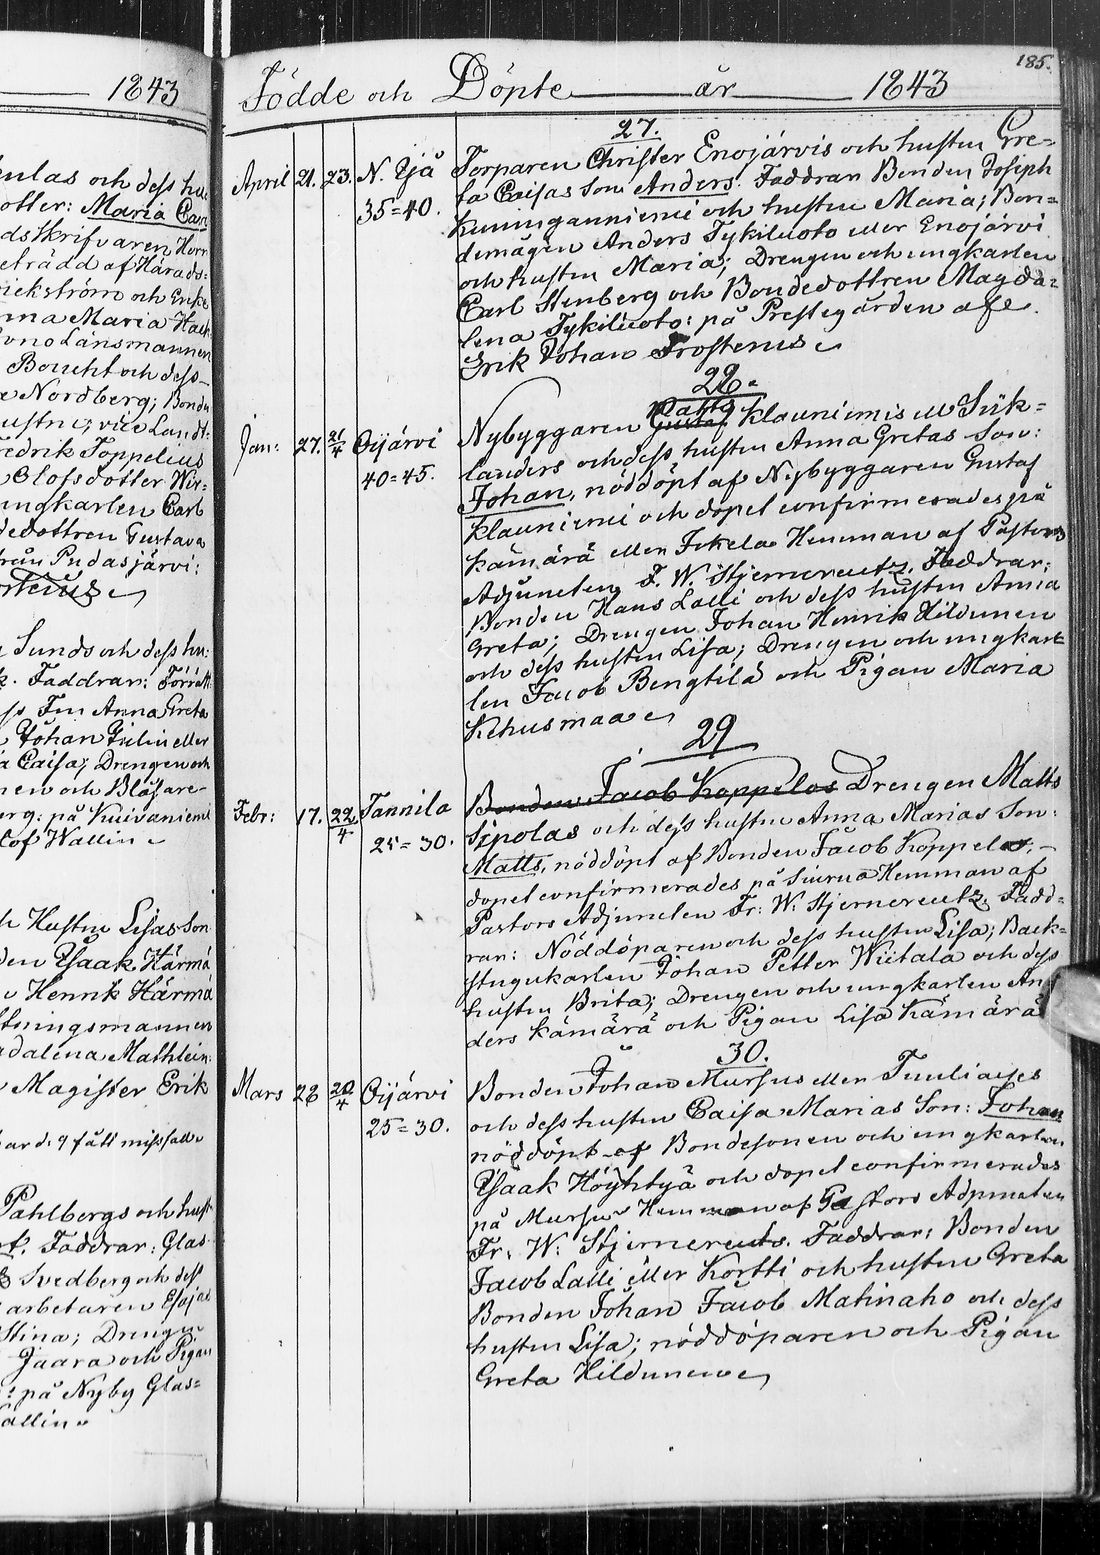 1843
otter: Maria
dsskrifvaren
eträdd af Härads-
och Enke
nna Maria
Länsmannen
Boucht och dess
Nordberg; Bonde
ustru; vice Landt-
redrik Toppelius
Olofsdotter Wir-
ungkarlen Carl
dedottren Gustava
från Pudasjärvi:
Sunds och dess hu-
Faddrar:
Fru Anna Greta
Johan Julin eller
Caisa; Drengen och
nen och Blåsare-
erg: på Kuivaniemi
lof Wallin
Hustru Lisas Son
den Ysaak Härmä
Henrik Härmä
ftningsmannen
adalena Mathlein:
Magister Erik
ar d: 9 fått missfall
Pahlbergs och hust-
Faddrar: Glas-
Svedberg och dess
arbetaren Esajas
Stina; Drengen
Jaara och Pigan
: på Nyby Glas=
allin
185.
Födde och Döpte år 1843
27.
April 21. 23. N. Yjå Torparen Christer Enojärvis och hustru Gre-
35=40. ta Caisas Son Anders. Faddrar Bonden Joseph
Kuninganniemi och hustru Maria; Bon-
demågen Anders Tykiluoto eller Enojärvi
och hustru Maria; Drengen och ungkarlen
Carl Stenberg och Bondedottren Magda-
lena Tykiluoto: på Prestegården af
Erik Johan Frosterus
28.
Matts
Jan: 27. 21/4 Oijärvi Nybyggaren Gustaf Klauniemis ell Siik=
40=45. landers och dess hustru Anna Gretas Son:
Johan, nöddöpt af Nybyggaren Gustaf
Klauniemi och dopet confirmerades på
Kämärä eller Jokela Hemman af Pastors
Adjuncten F. W. Stjerncreutz. Faddrar:
Bonden Hans Lalli och dess hustru Anna
Greta; Drengen Johan Henrik Hildunen
och dess hustru Lisa; Drengen och ungkar-
len Jacob Bengtilä och Pigan Maria
Kehusmaa
29
Febr: 17. 22/4 Tannila Bonden Jacob Koppelos Drengen Matts
25=30. Sipolas och dess hustru Anna Marias Son:
Matts, nöddöpt af Bonden Jacob Koppelo,
dopet confirmerades på Siurua Hemman af
Pastors Adjuncten Fr: W: Stjerncreutz. Fadd=
rar: Nöddöparen och dess hustru Lisa; Back=
stugukarlen Johan Petter Wiitala och dess
hustru Brita; Drengen och ungkarlen An-
ders Kämärä och Pigan Lisa Kämärä
30.
Mars 28 20/4 Oijärvi Bonden Johan Mursus eller Tuuliaises
25=30. och dess hustru Caisa Marias Son: Johan
nöddöpt af Bondesonen och ungkarlen
Ysaak Höyhtyä och dopet confirmerades
på Mursu Hemman af Pastors Adjuncten
Fr: W: Stjerncreutz. Faddrar: Bonden
Jacob Lalli eller Kortti och hustru Greta
Bonden Johan Jacob Matinaho och dess
hustru Lisa; nöddöparen och Pigan
Greta Hildunen